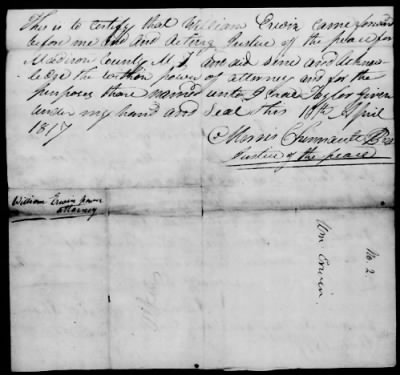 This is to certify that William Erwin came forward
before me and Acting Justice of the peace for
Madison County M. T. and did sine and Acknow
ledge the within power of attorney and for the
purposes thare named unto Isaac Taylor Given
under my hand and Seal this 16th April
1817
Justice of the peace
William Erwin power
attorney
No. 2
Wm Erwin.